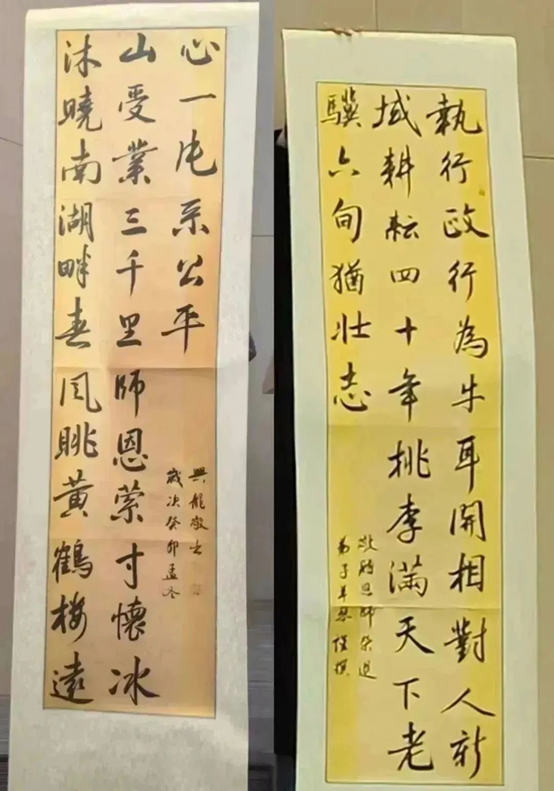 執行政行為牛耳開相對人新
域耕耘四十年桃李滿天下老
驥六旬猶壯志
恩師榮退
弟子
沐曉南湖畔春風眺黃鶴樓遠
山受業三千里師恩縈寸懷冰
心一片系公平
歲次癸卯孟冬
興龍敬書